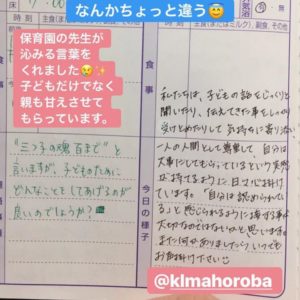 なんかちょっと違う😇
保育園の先生が
沁みる言葉を
くれました😢✨
子どもだけでなく
親も甘えさせて
もらっています。
食事
今日の様子
"三つ子の魂百まで"と
言いますが、子どものために
どんなことをしてあげるのが
良いのでしょうか?
私たちは、子どもの話をじっくりと
聞いたり、伝えてきた事をしっかり
受けとめたりして気持ちに寄りそい
一人の人間として尊重して「自分は
大事にしてもらっている」という実感
が持てるように、日々心掛けて
います。「自分は認められてい
る」と感じられるように接する事が
大切なのではないかと思います。
また何かありましたら、いつでも
お声掛け下さい☺
@klmahoroba